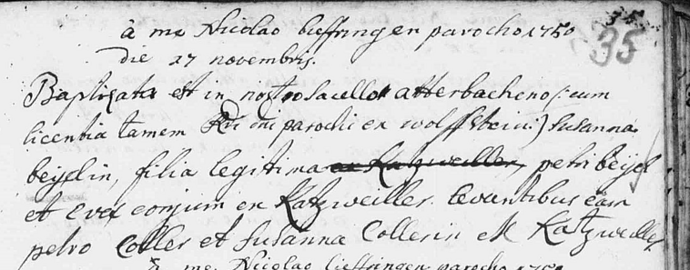 35.
35
à me Nicolao Lieffringen parocho 1750
die 17 novembris.
Baptizata est in nostro sacello atterbacheno (: cum
licentia tamen Rdi Dni parochi ex wolffstein :) Susanna
beÿelin, filia legitima ex Katzweiller, petri beÿel
et Evæ conjum ex Katzweiller. levantibus eam
petro Coller et Susanna Collerin ex Katzweiller
à me Nicolao Lieffringen parocho 1750